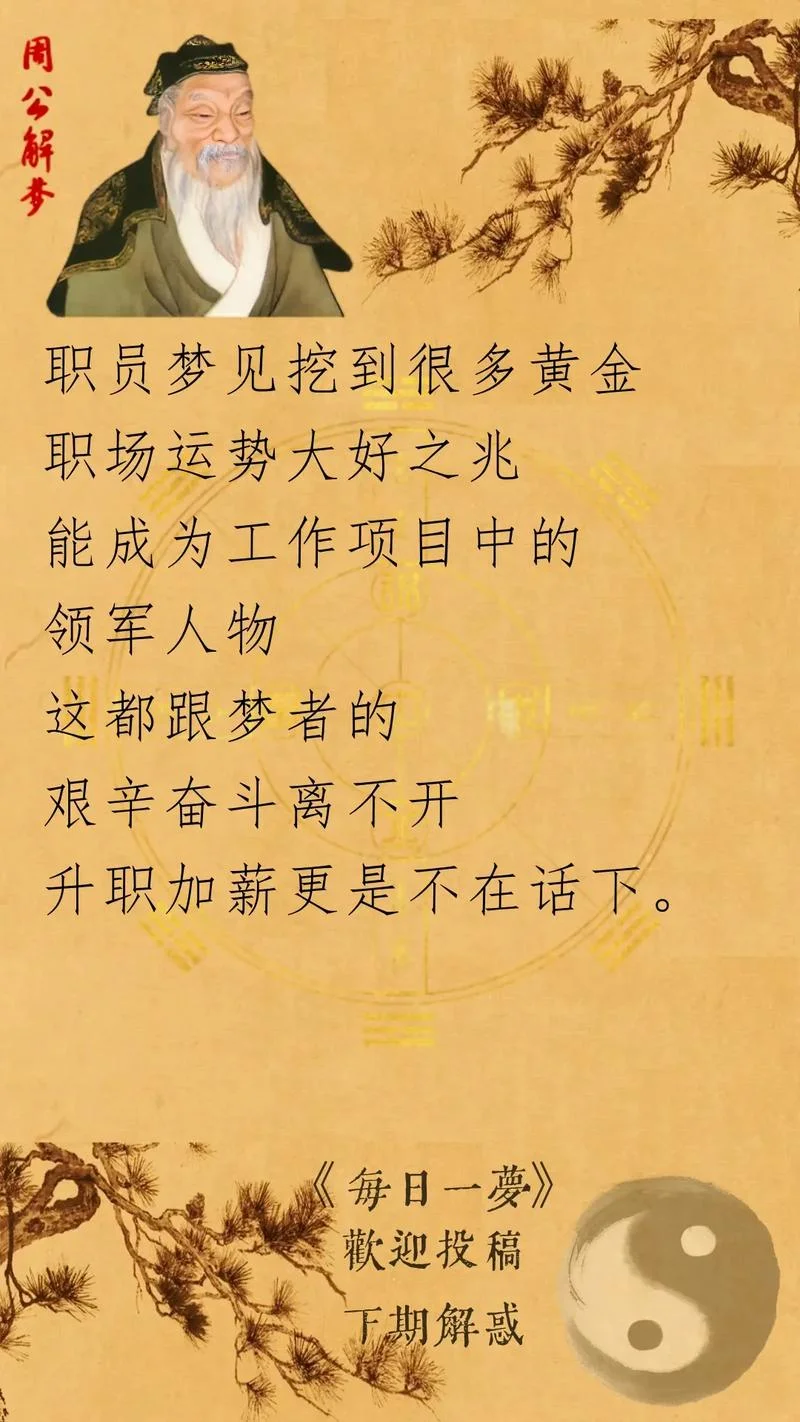 周公解梦
职员梦见挖到很多黄金
职场运势大好之兆
能成为工作项目中的
领军人物
这都跟梦者的
艰辛奋斗离不开
升职加薪更是不在话下。
《每日一夢》
歡迎投稿
下期解惑